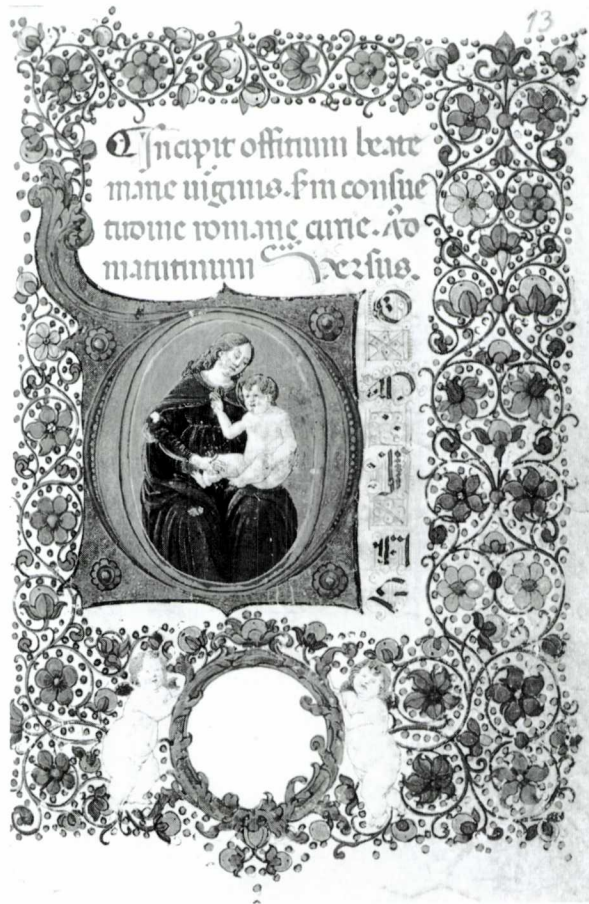 13
Incipit offitium beate
marie uirginis. sm consue
tudine romane curie. Ad
matutinum Versus.
D